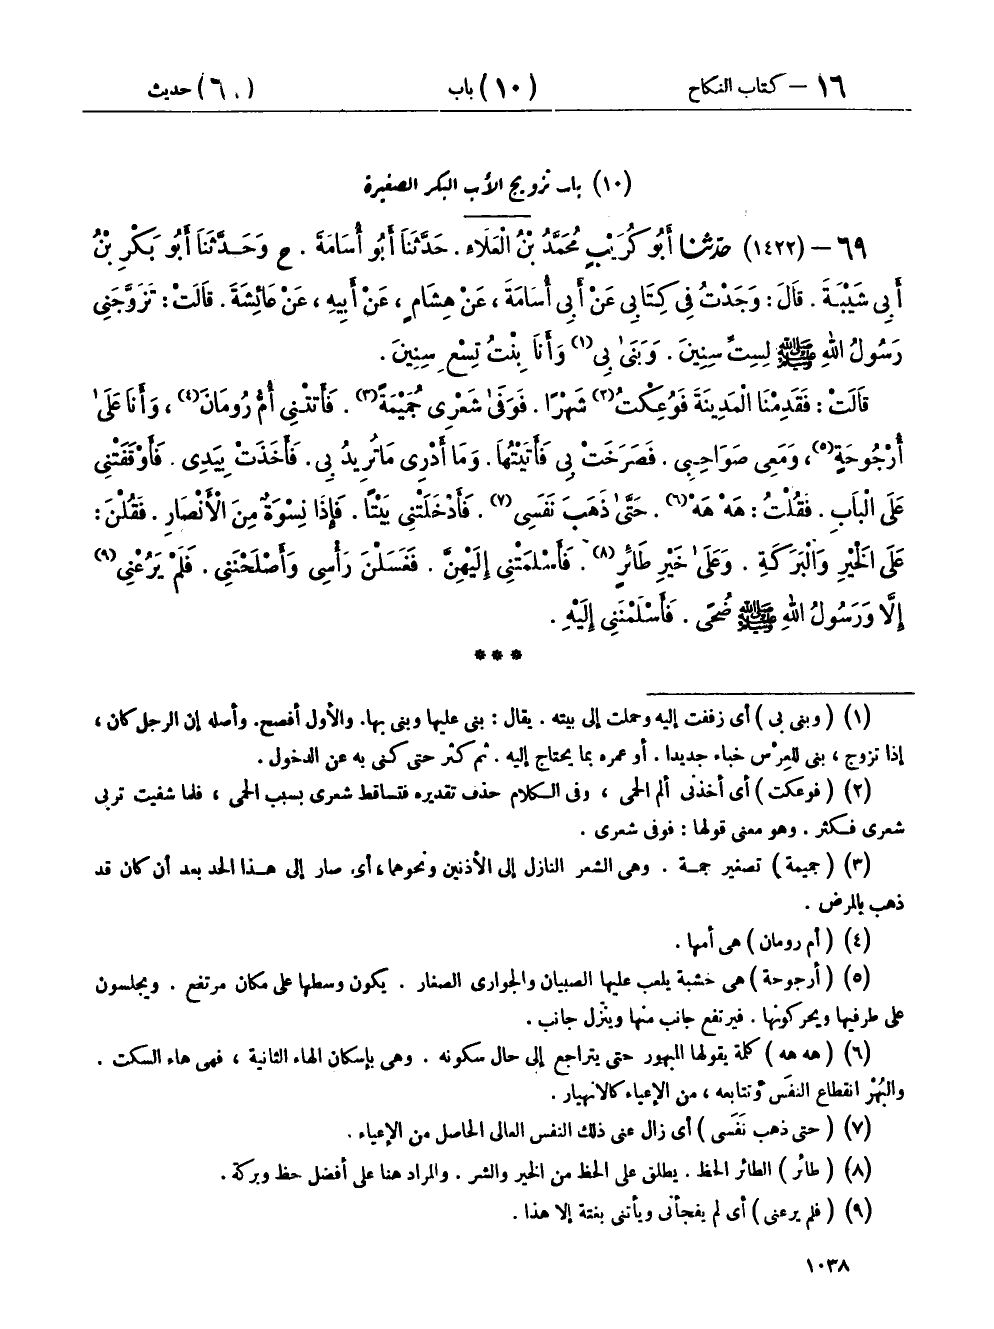 ١٦ – كتاب النكاح (١٠) باب (٦٠) حديث
(١٠) باب تزويج الأب البكر الصغيرة
٦٩ – (١٤٢٢) حَدَّثَنَا أَبُو كُرَيْبٍ مُحَمَّدُ بْنُ الْعَلَاءِ . حَدَّثَنَا أَبُو أُسَامَةَ . ح وَحَدَّثَنَا أَبُو بَكْرِ بْنُ
أَبِي شَيْبَةَ . قَالَ : وَجَدْتُ فِي كِتَابِي عَنْ أَبِي أُسَامَةَ ، عَنْ هِشَامٍ ، عَنْ أَبِيهِ ، عَنْ عَائِشَةَ . قَالَتْ : تَزَوَّجَنِي
رَسُولُ اللهِ ﷺ لِسِتِّ سِنِينَ . وَبَنَىٰ بِي(١) وَأَنَا بِنْتُ تِسْعِ سِنِينَ .
قَالَتْ : فَقَدِمْنَا الْمَدِينَةَ فَوُعِكْتُ(٢) شَهْرًا . فَوَفَىٰ شَعْرِي جُمَيْمَةً(٣) . فَأَتَتْنِي أُمُّ رُومَانَ(٤) ، وَأَنَا عَلَىٰ
أُرْجُوحَةٍ(٥) ، وَمَعِي صَوَاحِبِي . فَصَرَخَتْ بِي فَأَتَيْتُهَا . وَمَا أَدْرِي مَا تُرِيدُ بِي . فَأَخَذَتْ بِيَدِي . فَأَوْقَفَتْنِي
عَلَى الْبَابِ . فَقُلْتُ : هَهْ هَهْ(٦) . حَتَّىٰ ذَهَبَ نَفَسِي(٧) . فَأَدْخَلَتْنِي بَيْتًا . فَإِذَا نِسْوَةٌ مِنَ الْأَنْصَارِ . فَقُلْنَ :
عَلَى الْخَيْرِ وَالْبَرَكَةِ . وَعَلَىٰ خَيْرِ طَائِرٍ(٨) . فَأَسْلَمَتْنِي إِلَيْهِنَّ . فَغَسَلْنَ رَأْسِي وَأَصْلَحْنَنِي . فَلَمْ يَرُعْنِي(٩)
إِلَّا وَرَسُولُ اللهِ ﷺ ضُحًى . فَأَسْلَمْنَنِي إِلَيْهِ .
***
(١) ( وبنى بى ) أى زففت إليه وحملت إلى بيته . يقال : بنى عليها وبنى بها. والأول أفصح. وأصله إن الرجل كان ،
إذا تزوج ، بنى للعِرْس خباء جديدا . أو عمره بما يحتاج إليه . ثم كثر حتى كنى به عن الدخول .
(٢) ( فوعكت ) أى أخذنى ألم الحمى ، وفى الكلام حذف تقديره فتساقط شعرى بسبب الحمى ، فلما شفيت تربى
شعرى فكثر . وهو معنى قولها : فوفى شعرى .
(٣) ( جميمة ) تصغير جمة . وهى الشعر النازل إلى الأذنين ونحوهما ، أى صار إلى هذا الحد بعد أن كان قد
ذهب بالمرض .
(٤) ( أم رومان ) هى أمها .
(٥) ( أرجوحة ) هى خشبة يلعب عليها الصبيان والجوارى الصغار . يكون وسطها على مكان مرتفع . ويجلسون
على طرفيها ويحركونها . فيرتفع جانب منها وينزل جانب .
(٦) ( هه هه ) كلمة يقولها المبهور حتى يتراجع إلى حال سكونه . وهى بإسكان الهاء الثانية ، فهى هاء السكت .
والبُهْر انقطاع النفَس وتتابعه ، من الإعياء كالانبهار .
(٧) ( حتى ذهب نَفَسى ) أى زال عنى ذلك النفس العالى الحاصل من الإعياء .
(٨) ( طائر ) الطائر الحظ . يطلق على الحظ من الخير والشر . والمراد هنا على أفضل حظ وبركة .
(٩) ( فلم يرعنى ) أى لم يفجأنى ويأتنى بغتة إلا هذا .
١٠٣٨